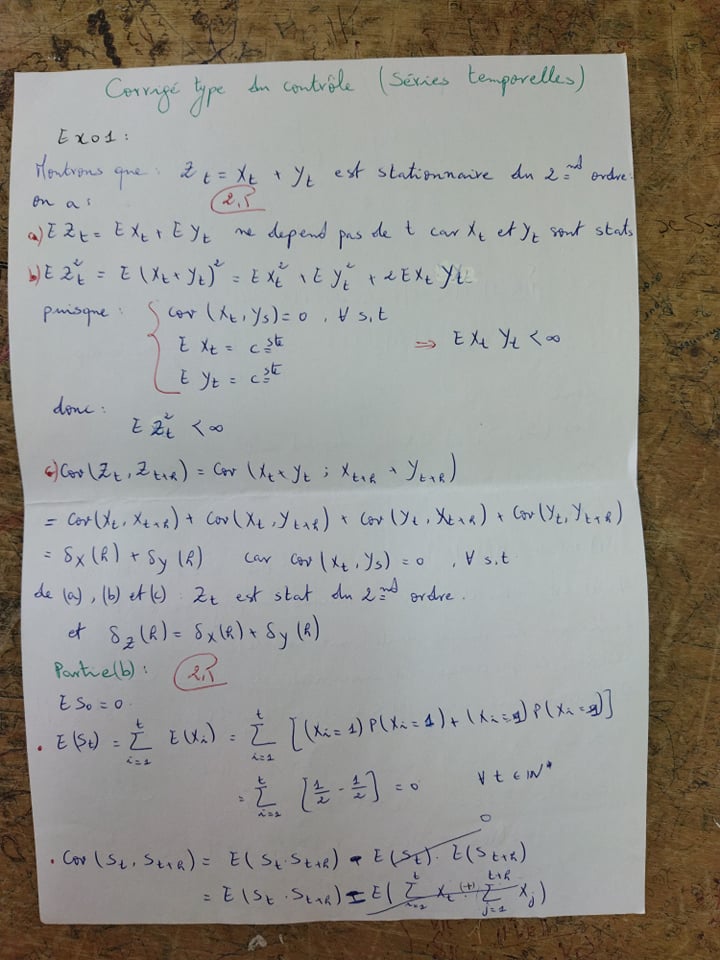 Corrigé type du contrôle (Séries temporelles)
Exo1 :
Montrons que : Z_t = X_t + Y_t est stationnaire du 2nd ordre.
on a : 2,5
a) E Z_t = E X_t + E Y_t ne depend pas de t car X_t et Y_t sont stats
b) E Z_t^2 = E (X_t + Y_t)^2 = E X_t^2 + E Y_t^2 + 2 E X_t Y_t
puisque : { Cov (X_t, Y_s) = 0 , ∀ s,t
E X_t = c ste ⇒ E X_t Y_t < ∞
E Y_t = c ste
donc :
E Z_t^2 < ∞
c) Cov(Z_t, Z_{t+h}) = Cov (X_t + Y_t ; X_{t+h} + Y_{t+h})
= Cov(X_t, X_{t+h}) + Cov(X_t, Y_{t+h}) + Cov(Y_t, X_{t+h}) + Cov(Y_t, Y_{t+h})
= δ_X(h) + δ_Y(h) car cov(X_t, Y_s) = 0 , ∀ s,t
de (a), (b) et (c) : Z_t est stat du 2nd ordre.
et δ_Z(h) = δ_X(h) + δ_Y(h)
Partie(b) : 2,5
E S_0 = 0
. E(S_t) = Σ_{i=1}^{t} E(X_i) = Σ_{i=1}^{t} [(X_i = 1) P(X_i = 1) + (X_i = -1) P(X_i = -1)]
= Σ_{i=1}^{t} [1/2 - 1/2] = 0 ∀ t ∈ IN*
0
. Cov (S_t, S_{t+h}) = E(S_t . S_{t+h}) - E(S_t) . E(S_{t+h})
= E(S_t . S_{t+h}) = E(Σ_{i=1}^{t} X_i (+) Σ_{j=1}^{t+h} X_j)